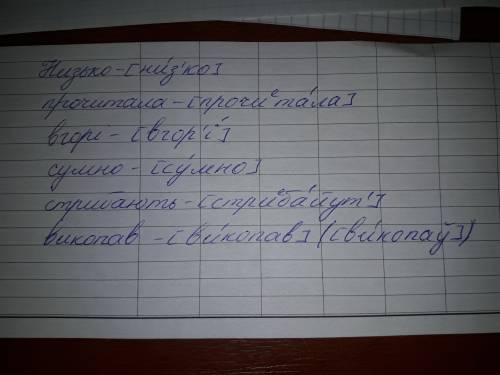 Низько-[ни́з'ко]
прочитала-[прочиᵉта́ла]
вгорі-[вгор'і́]
сумно-[су́мно]
стрибають-[стриᵉба́йут']
викопав-[ви́копав] ([ви́копаў])